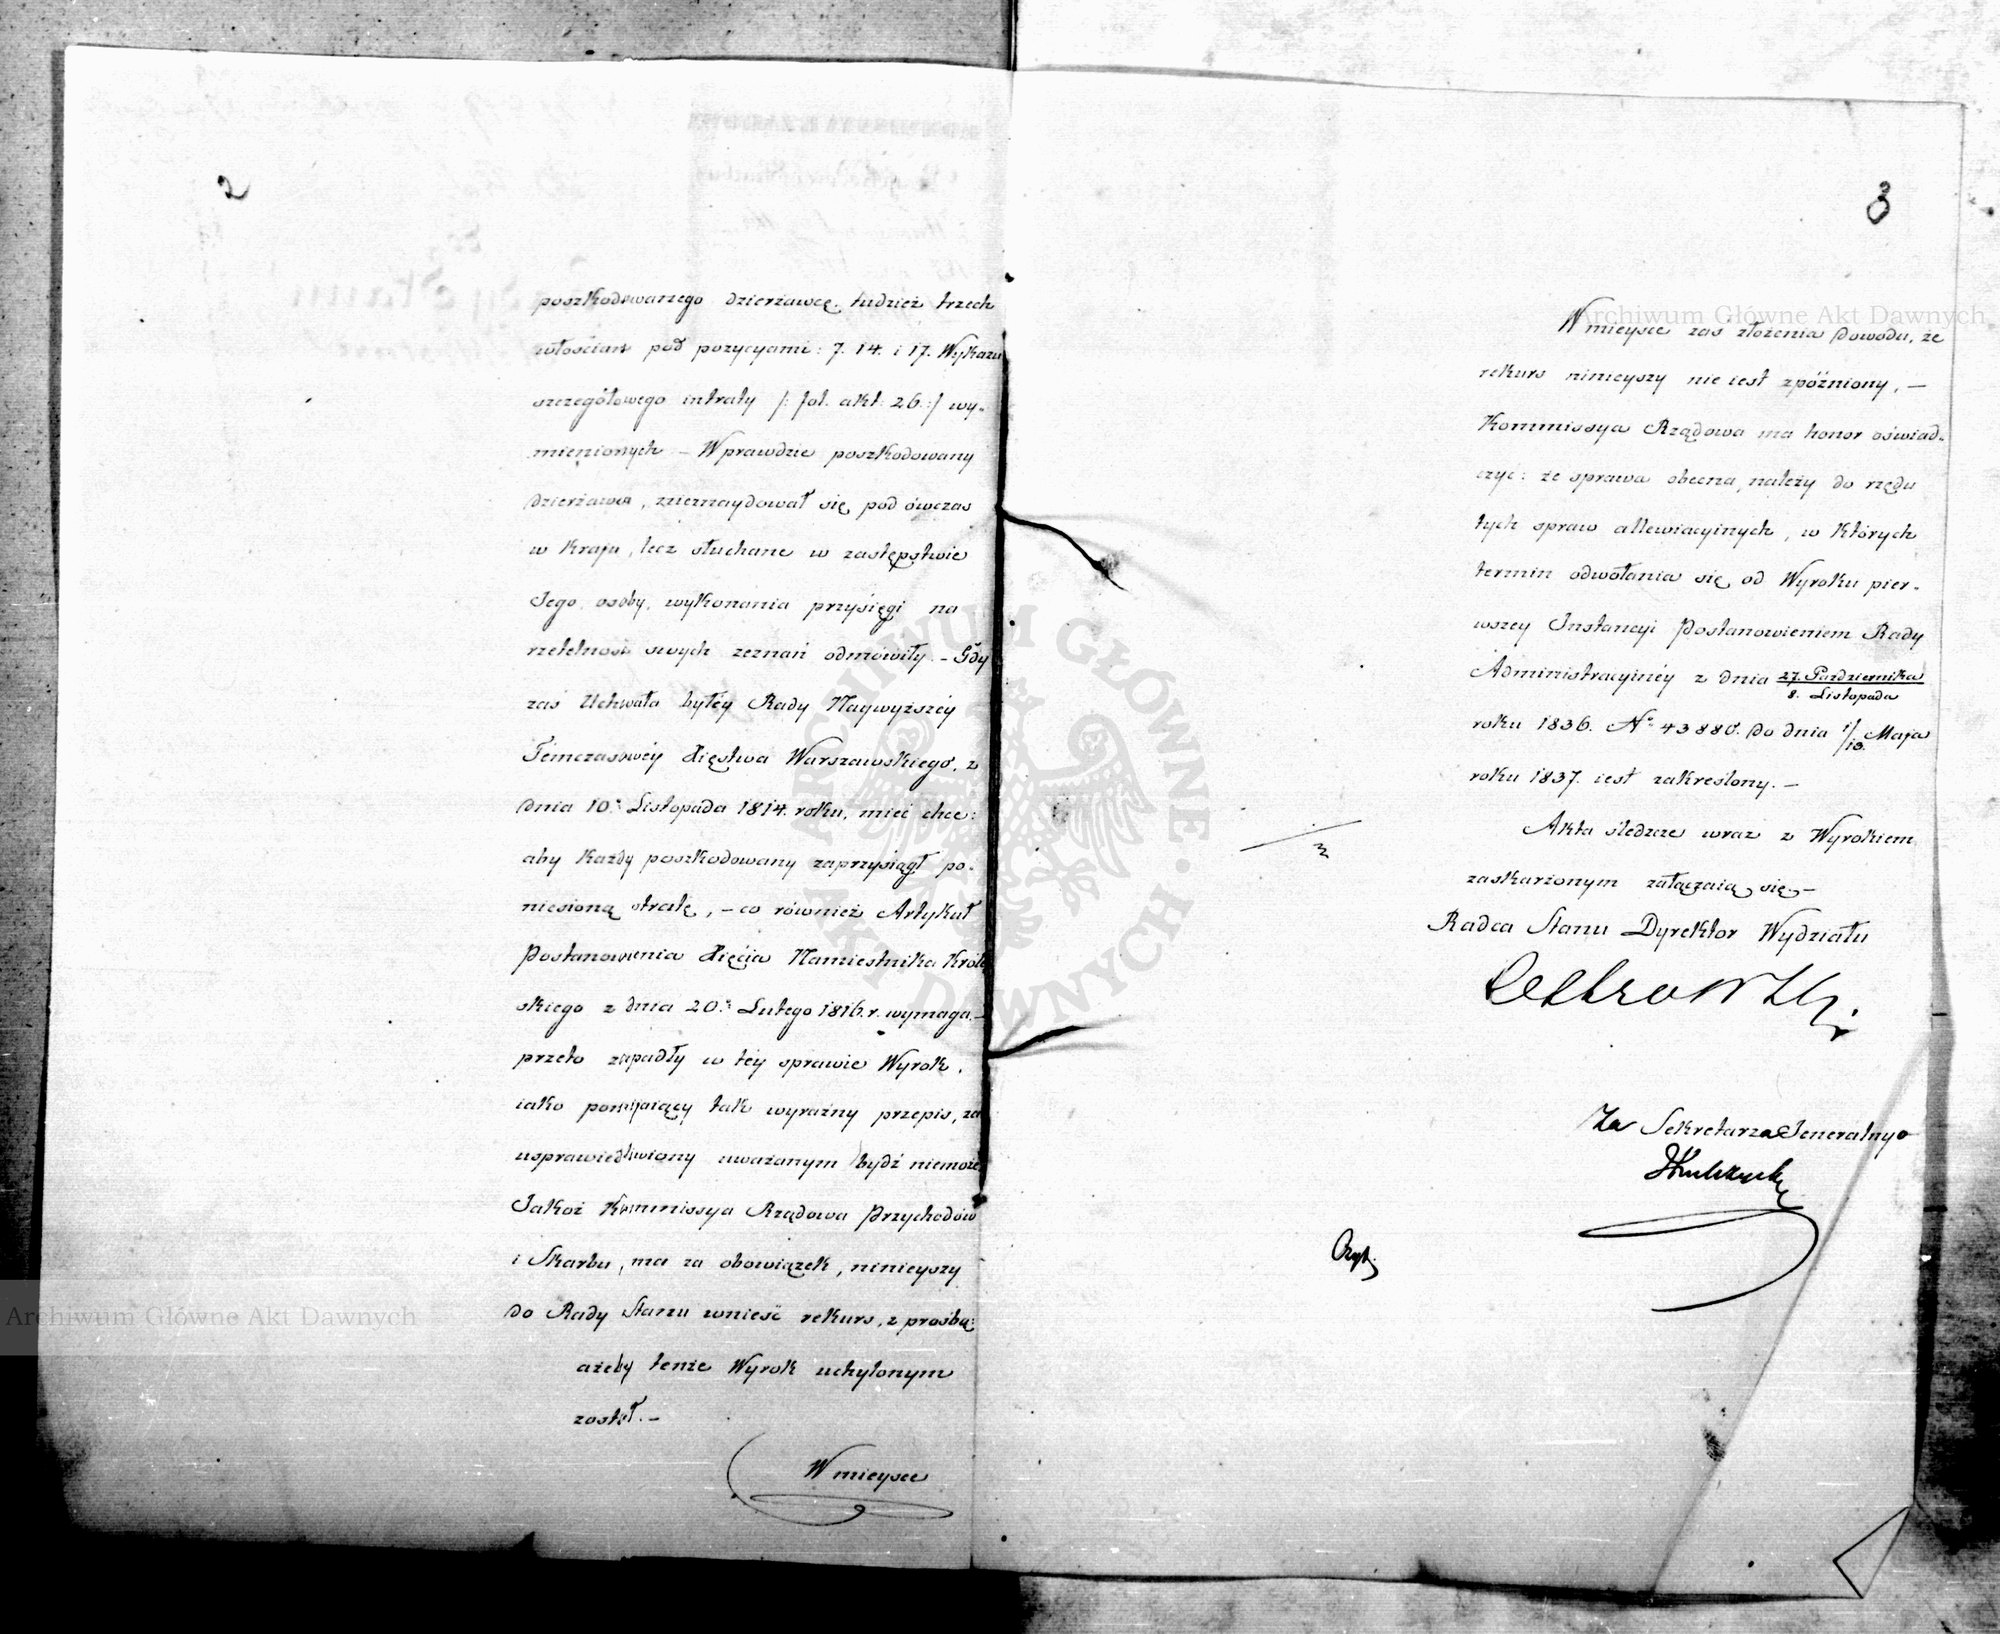 2
poszkodowanego dzierżawcę, tudzież trzech
włościan pod pozycyami: 7. 14. i 17. Wykazu
szczegółowego intraty /: fol. akt: 26. :/ wy-
mienionych – Wprawdzie poszkodowany
dzierżawca, nieznaydował się pod ówczas
w Kraju, lecz słuchane w zastępstwie
Jego osoby, wykonania przysięgi na
rzetelność swych zeznań odmówiły. – Gdy
zaś Uchwała byłéy Rady Naywyższéy
Témczasowéy Xięstwa Warszawskiego, z
dnia 10. Listopada 1814. roku, mieć chce:
aby każdy poszkodowany zaprzysiągł po-
niesioną stratę, – co również Artykuł
Postanowienia Xięcia Namiestnika Króle
skiego z dnia 20. Lutego 1816. r. wymaga. –
przeto zapadły w téy sprawie Wyrok,
iako pomijaiący tak wyraźny przepis, za
usprawiedliwiony uważanym bydź niemoże
Jakoż Kommissya Rządowa Przychodów
i Skarbu, ma za obowiązek, ninieyszy
do Rady Stanu wnieść rekurs, z prośbą:
ażeby tenże Wyrok uchylonym
został. –
W mieysce
3
W mieysce zaś złożenia dowodu, że
rekurs ninieyszy nie iest zpóźniony, –
Kommissya Rządowa ma honor oświad-
czyć: że sprawa obecna, należy do rzędu
tych spraw allewiacyinych, w których
termin odwołania się od Wyroku pier-
wszey Instancyi Postanowieniem Rady
Administracyinéy z dnia 27. Października
8. Listopada
roku 1836. No 43880. do dnia 1/13. Maja
roku 1837. iest zakreślony. –
Akta śledcze wraz z Wyrokiem
zaskarżonym załączaią się –
Radca Stanu Dyrektor Wydziału
Za Sekretarza Jeneralnego
Archiwum Główne Akt Dawnych
Archiwum Główne Akt Dawnych
ARCHIWUM GŁÓWNE AKT DAWNYCH